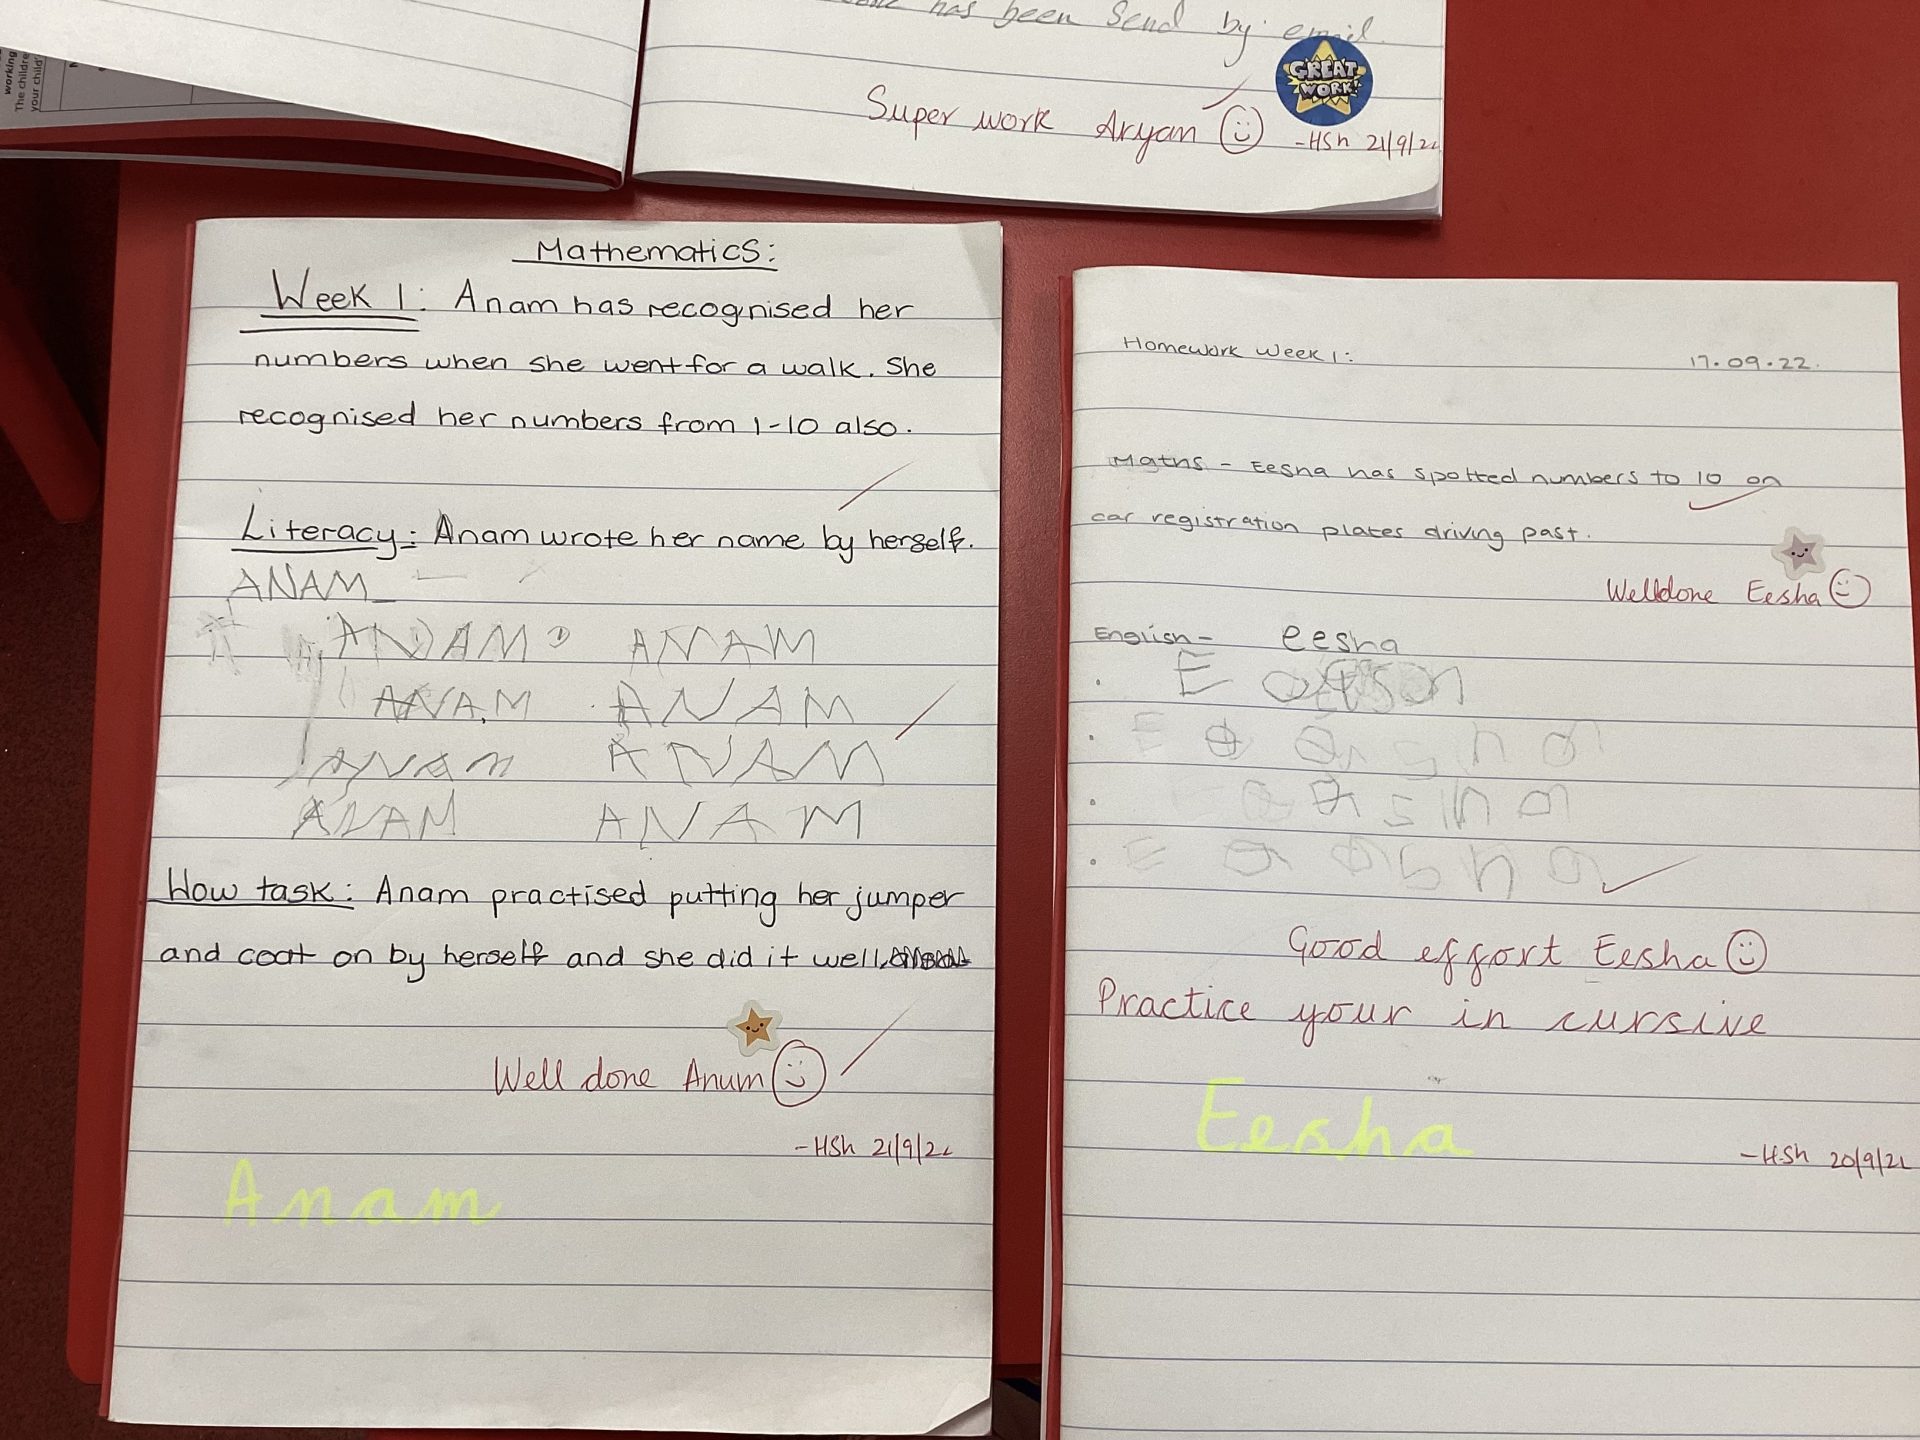 working
The childre
your child'
has been send by email.
GREAT
WORK!
Super work Aryan
-HSh 21/9/22
Mathematics:
Week 1: Anam has recognised her
numbers when she went for a walk. She
recognised her numbers from 1-10 also.
Literacy: Anam wrote her name by herself.
ANAM
ANAM ANAM
ANAM ANAM
ANAM ANAM
ANAM ANAM
Wow task: Anam practised putting her jumper
and coat on by herself and she did it well.
Well done Anum
-HSh 21/9/22
Anam
Homework Week 1: 17.09.22.
Maths - Eesha has spotted numbers to 10 on
car registration plates driving past.
Welldone Eesha
English - eesha
Good effort Eesha
Practice your in cursive
Eesha
-HSh 20/9/22